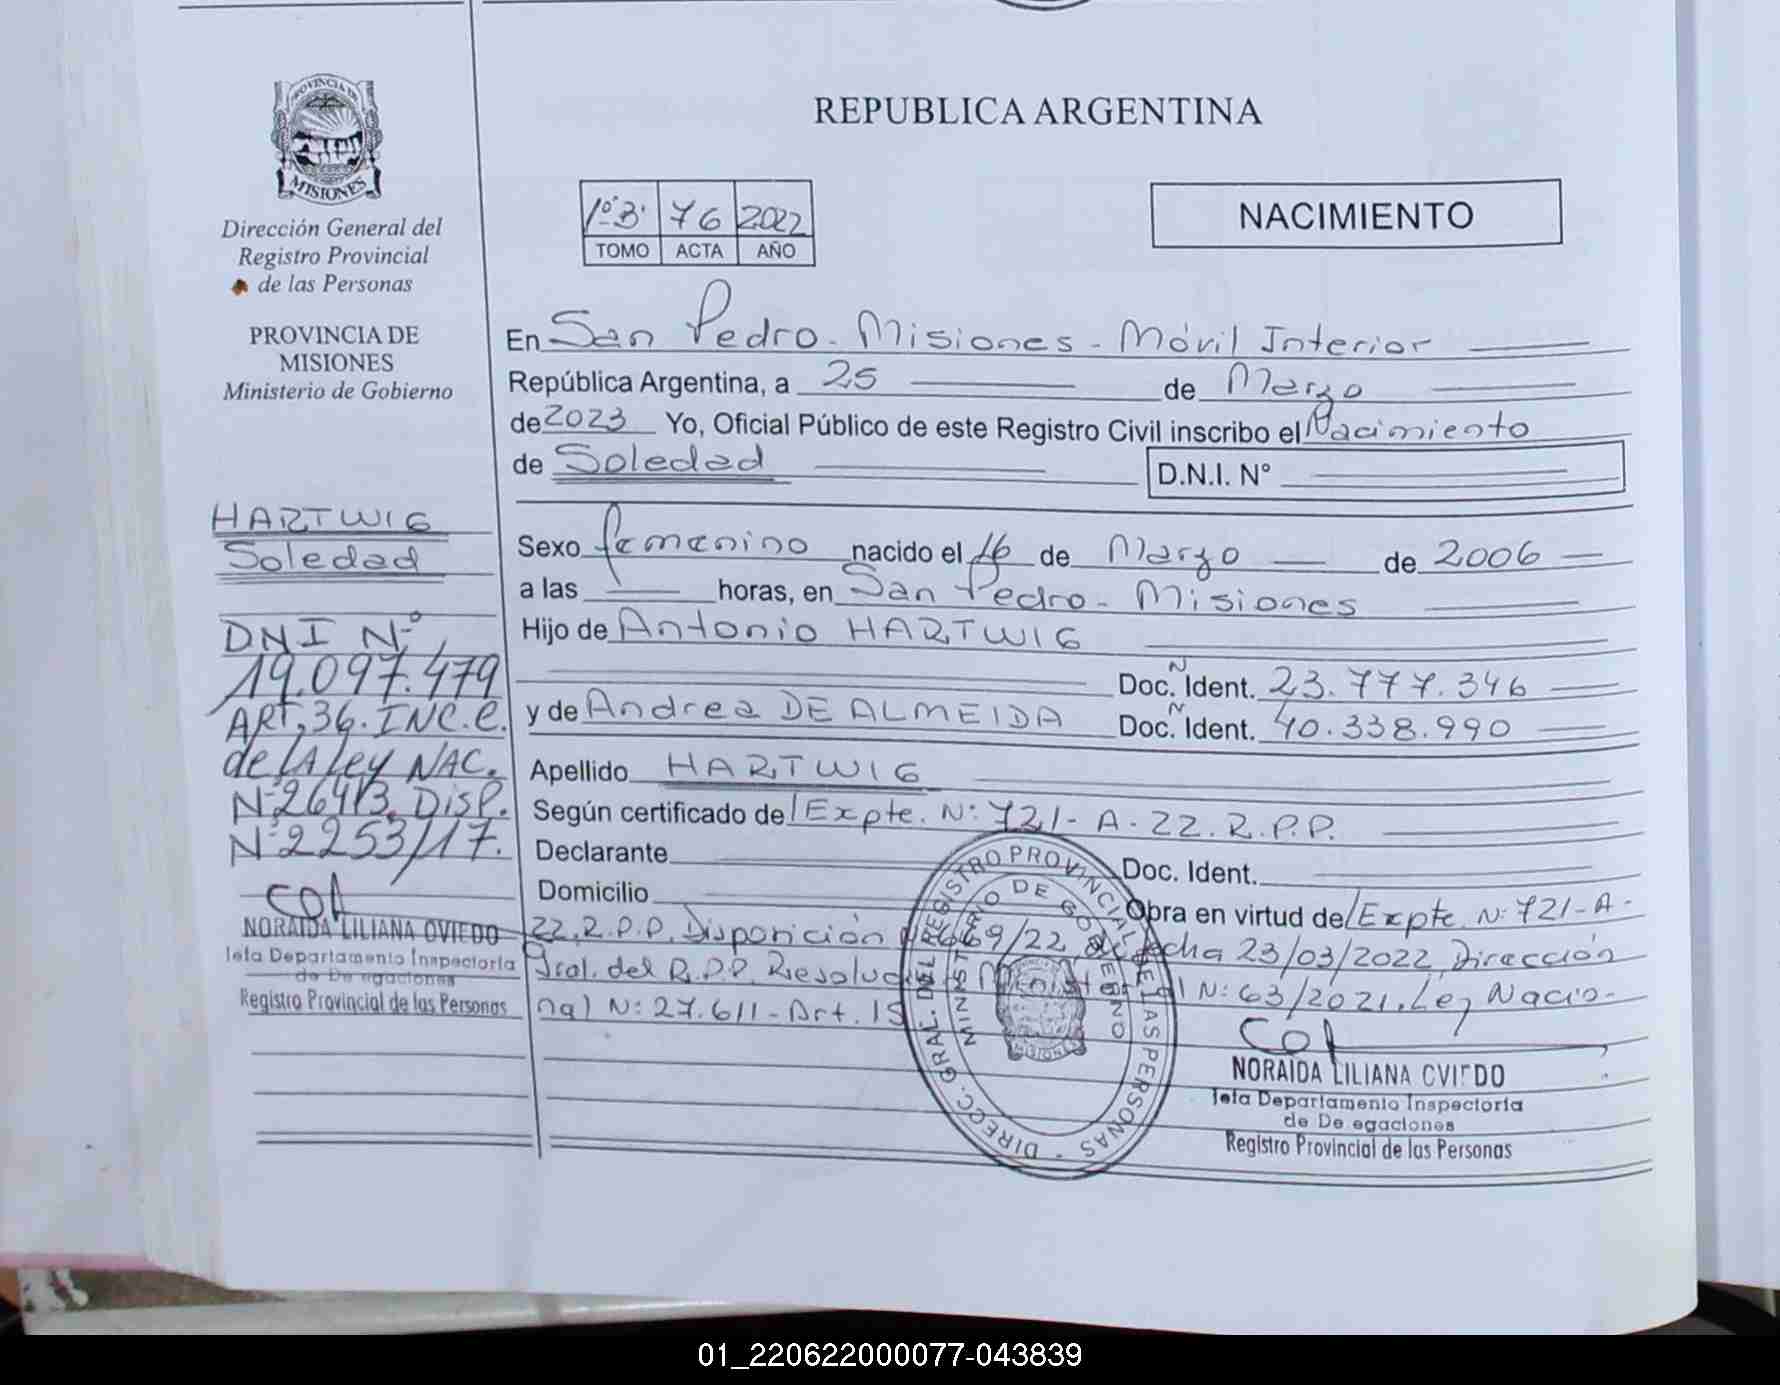 PROVINCIA DE
MISIONES
Dirección General del
Registro Provincial
de las Personas
PROVINCIA DE
MISIONES
Ministerio de Gobierno
HARTWIG
Soledad
DNI Nº
19.097.479
ART, 36. INC. C.
de lA ley NAC.
Nº 26413. DISP.
Nº 2253/17.
NORAIDA LILIANA OVIEDO
Jefa Departamento Inspectoria
de De egaciones
Registro Provincial de las Personas
REPUBLICA ARGENTINA
1º"B" 76 2022
TOMO ACTA AÑO
NACIMIENTO
En San Pedro - Misiones - Móvil Interior
República Argentina, a 25 de Marzo
de 2023 Yo, Oficial Público de este Registro Civil inscribo el Nacimiento
de Soledad D.N.I. N°
Sexo femenino nacido el 16 de Marzo de 2006
a las horas, en San Pedro - Misiones
Hijo de Antonio HARTWIG
Doc. Ñ Ident. 23.777.346
y de Andrea DE ALMEIDA Doc. Ñ Ident. 40.338.990
Apellido HARTWIG
Según certificado de Expte. N: 721 - A - 22. R.P.P.
Declarante Doc. Ident.
Domicilio Obra en virtud de Expte. N: 721 - A -
22. R.P.P. Disposición 669/22 de fecha 23/03/2022, Dirección
Gral. del R.P.P. Resolución Ministerial N: 63/2021, Ley Nacio-
nal N: 27.611 - Art. 15
DIRECC. GRAL. DEL REGISTRO PROVINCIAL DE LAS PERSONAS -
MINISTERIO DE GOBIERNO
MISIONES
NORAIDA LILIANA OVIEDO
Jefa Departamento Inspectoria
de De egaciones
Registro Provincial de las Personas
01_220622000077-043839